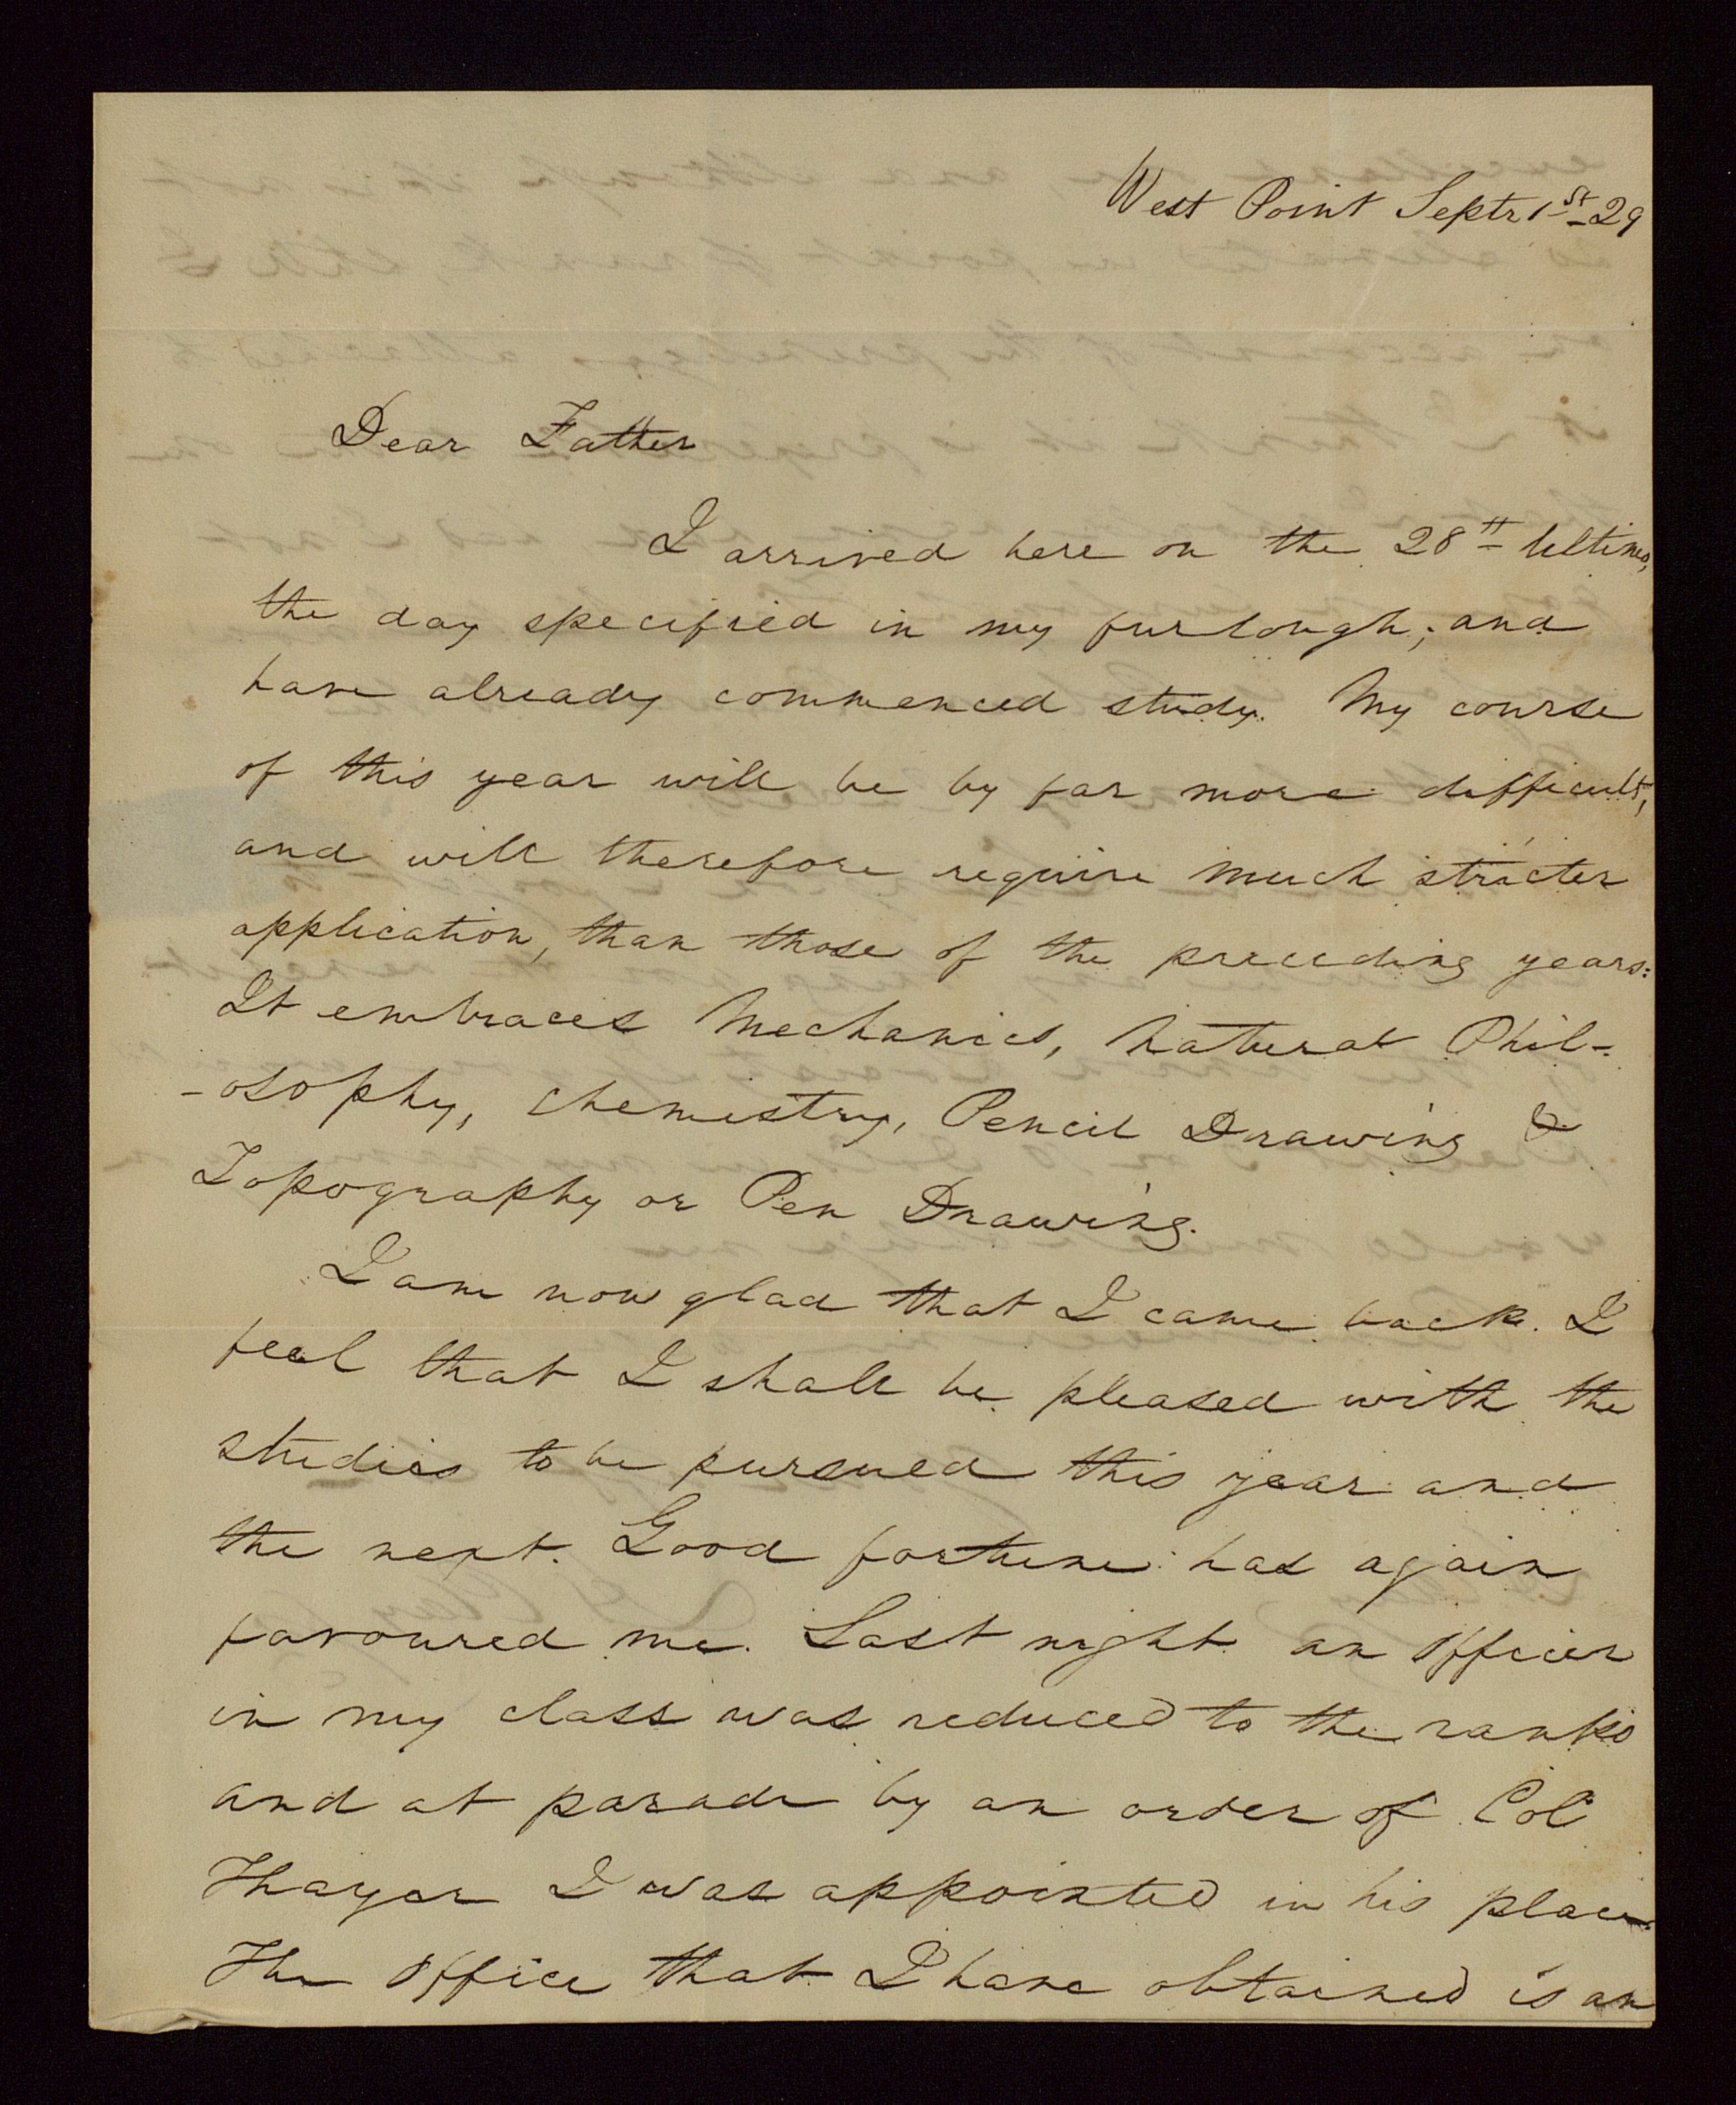 West Point Septr 1st 29
Dear Father
I arrived here on the 28th Ultimo,
the day specified in my furlough; and
have already commenced study. My course
of this year will be by far more difficult,
and will therefore require much stricter
application, than those of the preceding years:
It embraces Mechanics, Natural Phil-
-osophy, Chemistry, Pencil Drawing &
Topography or Pen Drawing.
I am now glad that I came back. I
feel that I shall be pleased with the
studies to be pursued this year and
the next. Good fortune has again
favoured me. Last night an Officer
in my class was reduced to the ranks
and at parade by an order of Col
Thayer I was appointed in his place.
The Office that I have obtained is an